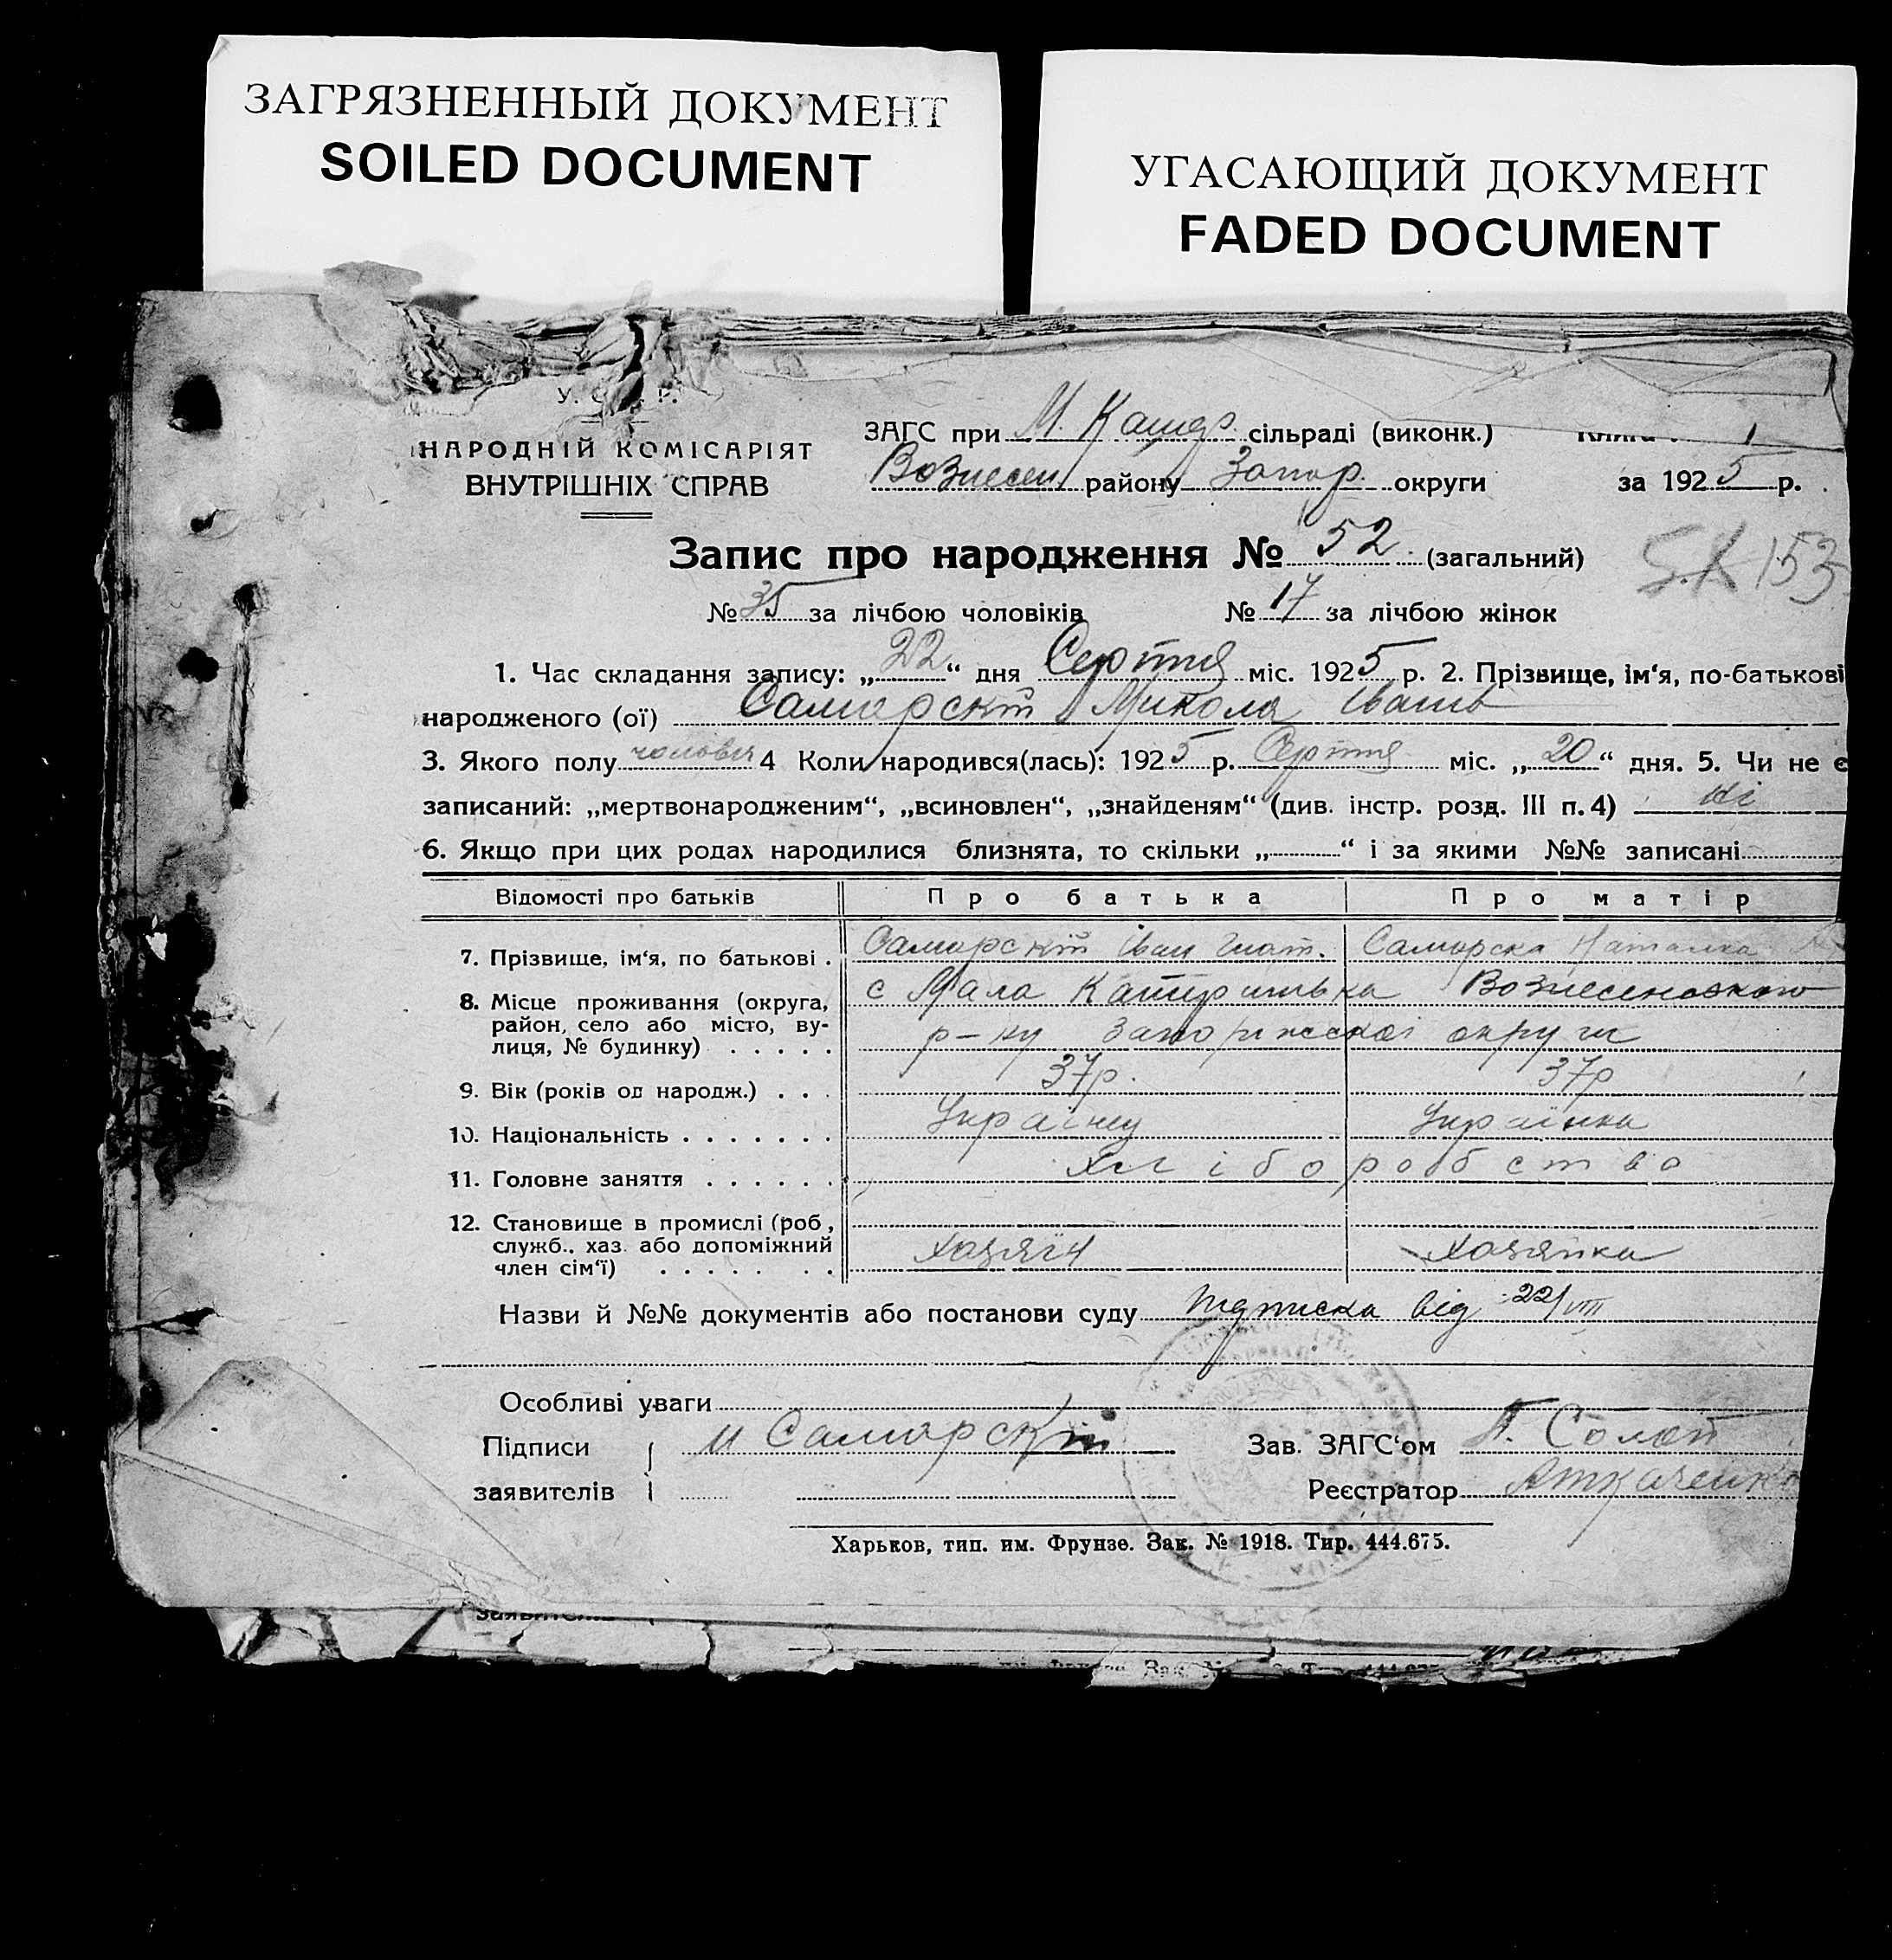 ЗАГРЯЗНЕННЫЙ ДОКУМЕНТ
SOILED DOCUMENT
УГАСАЮЩИЙ ДОКУМЕНТ
FADED DOCUMENT
НАРОДНІЙ КОМІСАРІЯТ
ВНУТРІШНІХ СПРАВ
ЗАГС при М. Катер. сільраді (виконк.) 1
Вознесен. району Запор. округи за 1925 р.
Запис про народження № 52 (загальний)
№ 35 за лічбою чоловіків № 17 за лічбою жінок
1. Час складання запису: „22“ дня Серпня міс. 1925 р. 2. Прізвище, ім‘я, по-батькові
народженого (ої) Самарскій Микола Іванів
3. Якого полу чоловіч 4 Коли народився(лась): 1925 р. Серпня міс. „20“ дня. 5. Чи не є
записаний: „мертвонародженим“, „всиновлен“, „знайденям“ (див. інстр. розд. III п. 4) ні
6. Якщо при цих родах народилися близнята, то скільки „ “ і за якими №№ записані
Відомості про батьків Про батька Про матір
7. Прізвище, ім‘я, по батькові . Самарскій Іван Самарска Наталка
8. Місце проживання (округа, с Мала Катеринівка Вознесеновского
район, село або місто, ву- р-ну Запоріжскої округи
лиця, № будинку) . . . . .
9. Вік (років од народж.) . . . 37р. 37р
10. Національність . . . . . . . Українец Українка
11. Головне заняття . . . . . . хліборобство
12. Становище в промислі (роб.,
служб., хаз. або допоміжний хазяїн хазяйка
член сім‘ї) . . . . . . .
Назви й №№ документів або постанови суду підписка від 22/VIII
Особливі уваги
Підписи И Самарскій Зав. ЗАГС‘ом
заявителів Реєстратор Ткаченко
Харьков, тип. им. Фрунзе. Зак. № 1918. Тир. 444.675.